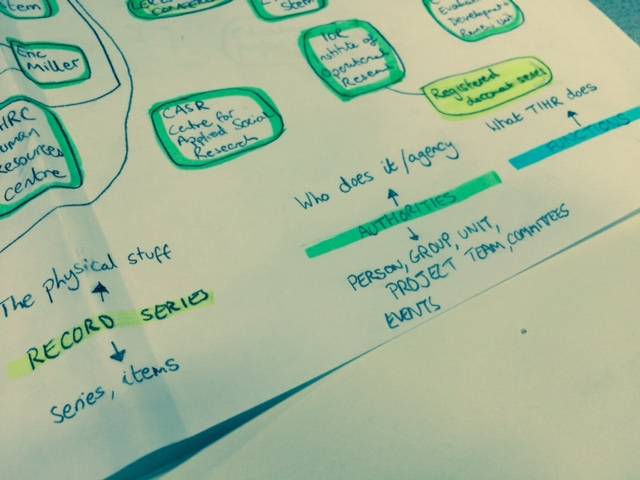 stem
Stem
Development
Review Unit
Eric
Miller
IOR
Institute of
Operational
Research
Registered
document series
CASR
Centre for
Applied Social
Research
HRC
Human
Resources
Centre
What TIHR does
FUNCTIONS
Who does it/agency
AUTHORITIES
PERSON, GROUP, UNIT,
PROJECT TEAM, COMMITTEES
EVENTS
The physical stuff
RECORD SERIES
series, items